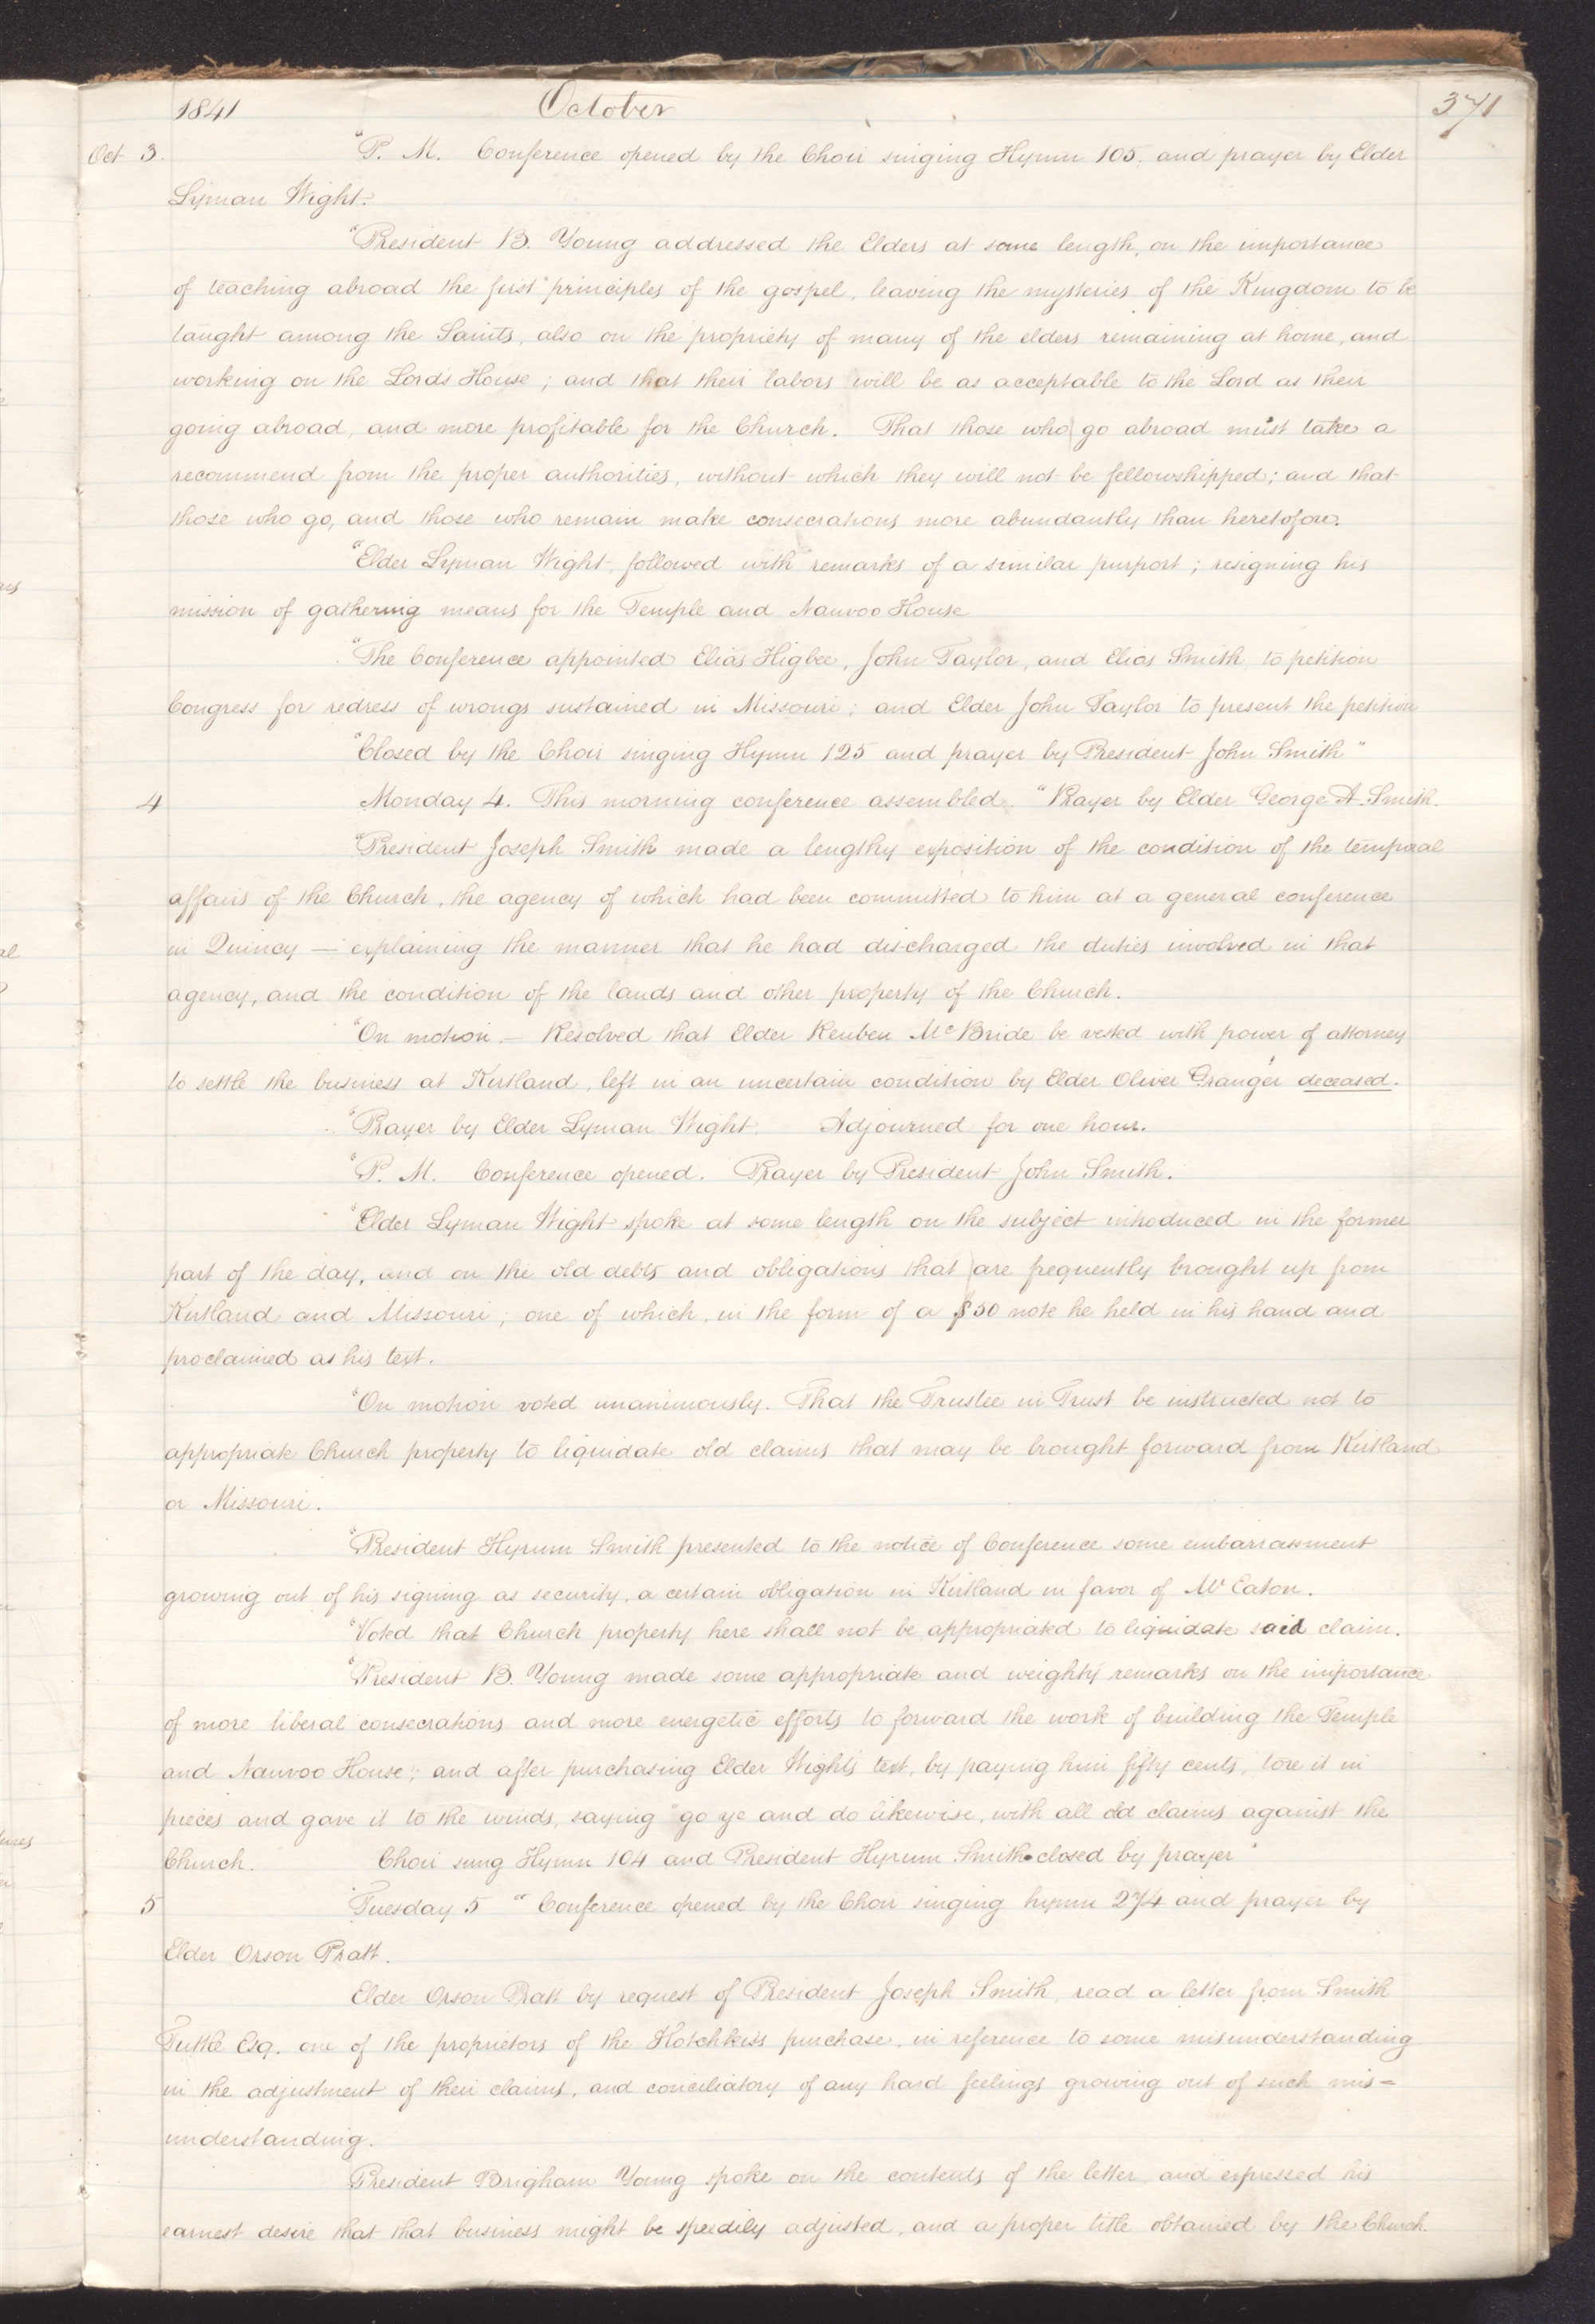 1841 October 371
Oct 3. "P. M. Conference opened by the Choir singing Hymn 105, and prayer by Elder
Lyman Wight.
"President B. Young addressed the Elders at some length, on the importance
of teaching abroad the first principles of the gospel, leaving the mysteries of the Kingdom to be
taught among the Saints, also on the propriety of many of the elders remaining at home, and
working on the Lord's House; and that their labors will be as acceptable to the Lord as their
going abroad, and more profitable for the Church. That those who go abroad must take a
recommend from the proper authorities, without which they will not be fellowshipped; and that
those who go, and those who remain make consecrations more abundantly than heretofore.
"Elder Lyman Wight, followed with remarks of a similar purport; resigning his
mission of gathering means for the Temple and Nauvoo House
"The Conference appointed Elias Higbee, John Taylor, and Elias Smith, to petition
Congress for redress of wrongs sustained in Missouri; and Elder John Taylor to present the petition
"Closed by the Choir singing Hymn 125 and prayer by President John Smith"
4 Monday 4. This morning conference assembled. "Prayer by Elder George A. Smith.
"President Joseph Smith made a lengthy exposition of the condition of the temporal
affairs of the Church, the agency of which had been committed to him at a general conference
in Quincy — explaining the manner that he had discharged the duties involved in that
agency, and the condition of the lands and other property of the Church.
"On motion — Resolved that Elder Reuben McBride be vested with power of attorney
to settle the business at Kirtland, left in an uncertain condition by Elder Oliver Granger deceased.
"Prayer by Elder Lyman Wight. Adjourned for one hour.
"P. M. Conference opened. Prayer by President John Smith.
"Elder Lyman Wight spoke at some length on the subject introduced in the former
part of the day, and on the old debts and obligations that are frequently brought up from
Kirtland and Missouri; one of which, in the form of a $50 note he held in his hand and
proclaimed as his text.
"On motion voted unanimously. That the Trustee in Trust be instructed not to
appropriate Church property to liquidate old claims that may be brought forward from Kirtland
or Missouri.
"President Hyrum Smith presented to the notice of Conference some embarrassment
growing out of his signing as security, a certain obligation in Kirtland in favor of Mr Eaton.
"Voted that Church property here shall not be appropriated to liquidate said claim.
"President B. Young made some appropriate and weighty remarks on the importance
of more liberal consecrations and more energetic efforts to forward the work of building the Temple
and Nauvoo House; and after purchasing Elder Wight's text, by paying him fifty cents, tore it in
pieces and gave it to the winds, saying "go ye and do likewise, with all old claims against the
Church. Choir sung Hymn 104 and President Hyrum Smith closed by prayer"
5 Tuesday 5 "Conference opened by the Choir singing hymn 274 and prayer by
Elder Orson Pratt.
Elder Orson Pratt by request of President Joseph Smith, read a letter from Smith
Tuttle Esq. one of the proprietors of the Hotchkiss purchase, in reference to some misunderstanding
in the adjustment of their claims, and conciliatory of any hard feelings growing out of such mis=
understanding.
President Brigham Young spoke on the contents of the letter, and expressed his
earnest desire that that business might be speedily adjusted, and a proper title obtained by the Church.